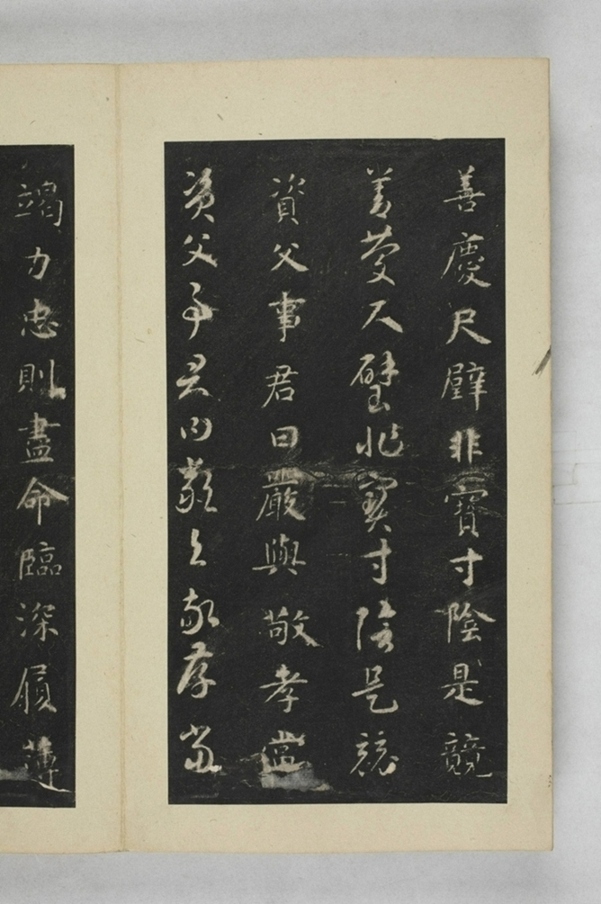 善慶尺璧非寶寸陰是競
善慶尺璧非寶寸陰是競
資父事君曰嚴與敬孝當
資父事君曰嚴與敬孝當
竭力忠則盡命臨深履薄